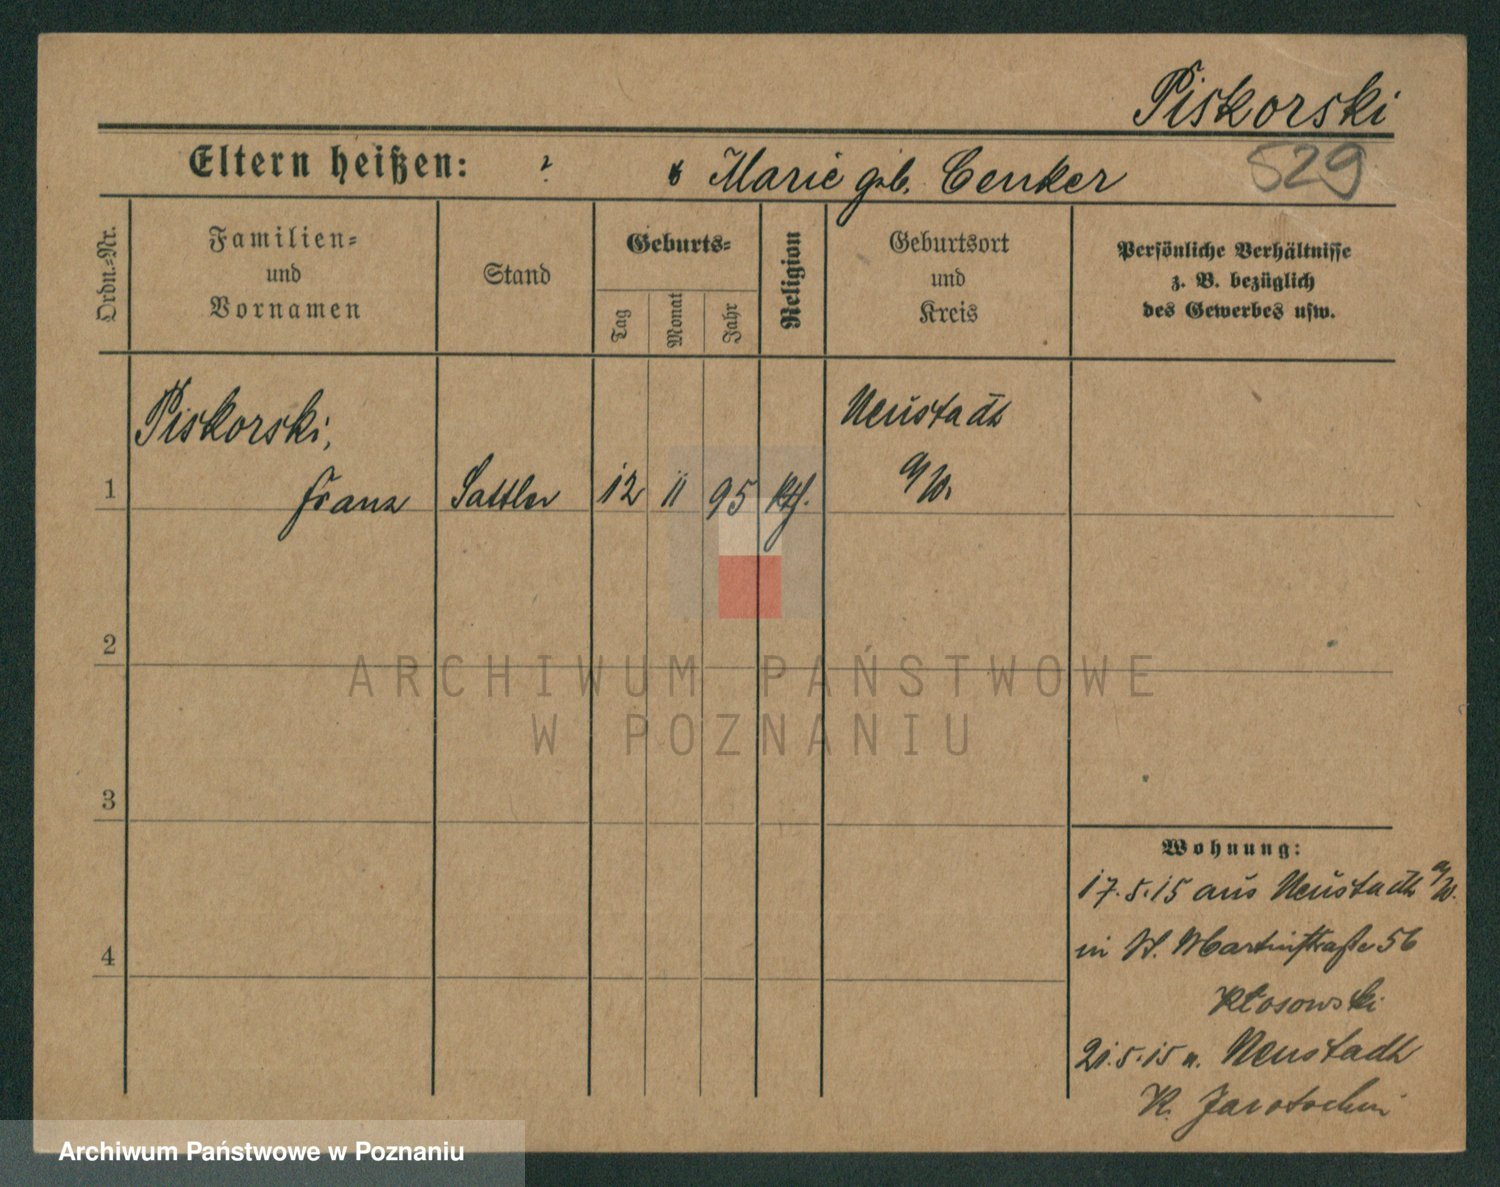 Piskorski
529
Eltern heißen: ? & Marie geb. Cenker
Ordn.-Nr.
Familien-
und
Vornamen
Stand
Geburts-
Tag
Monat
Jahr
Religion
Geburtsort
und
Kreis
Persönliche Verhältnisse
z. B. bezüglich
des Gewerbes usw.
Piskorski,
Neustadt
1 Franz Sattler 12 11 95 kth. a/W.
2
3
4
Wohnung:
17.5.15 aus Neustadt a/W.
in St. Martinstraße 56
Kłosowski
21.5.15 n. Neustadt
K. Jarotschin
ARCHIWUM PAŃSTWOWE
W POZNANIU
Archiwum Państwowe w Poznaniu